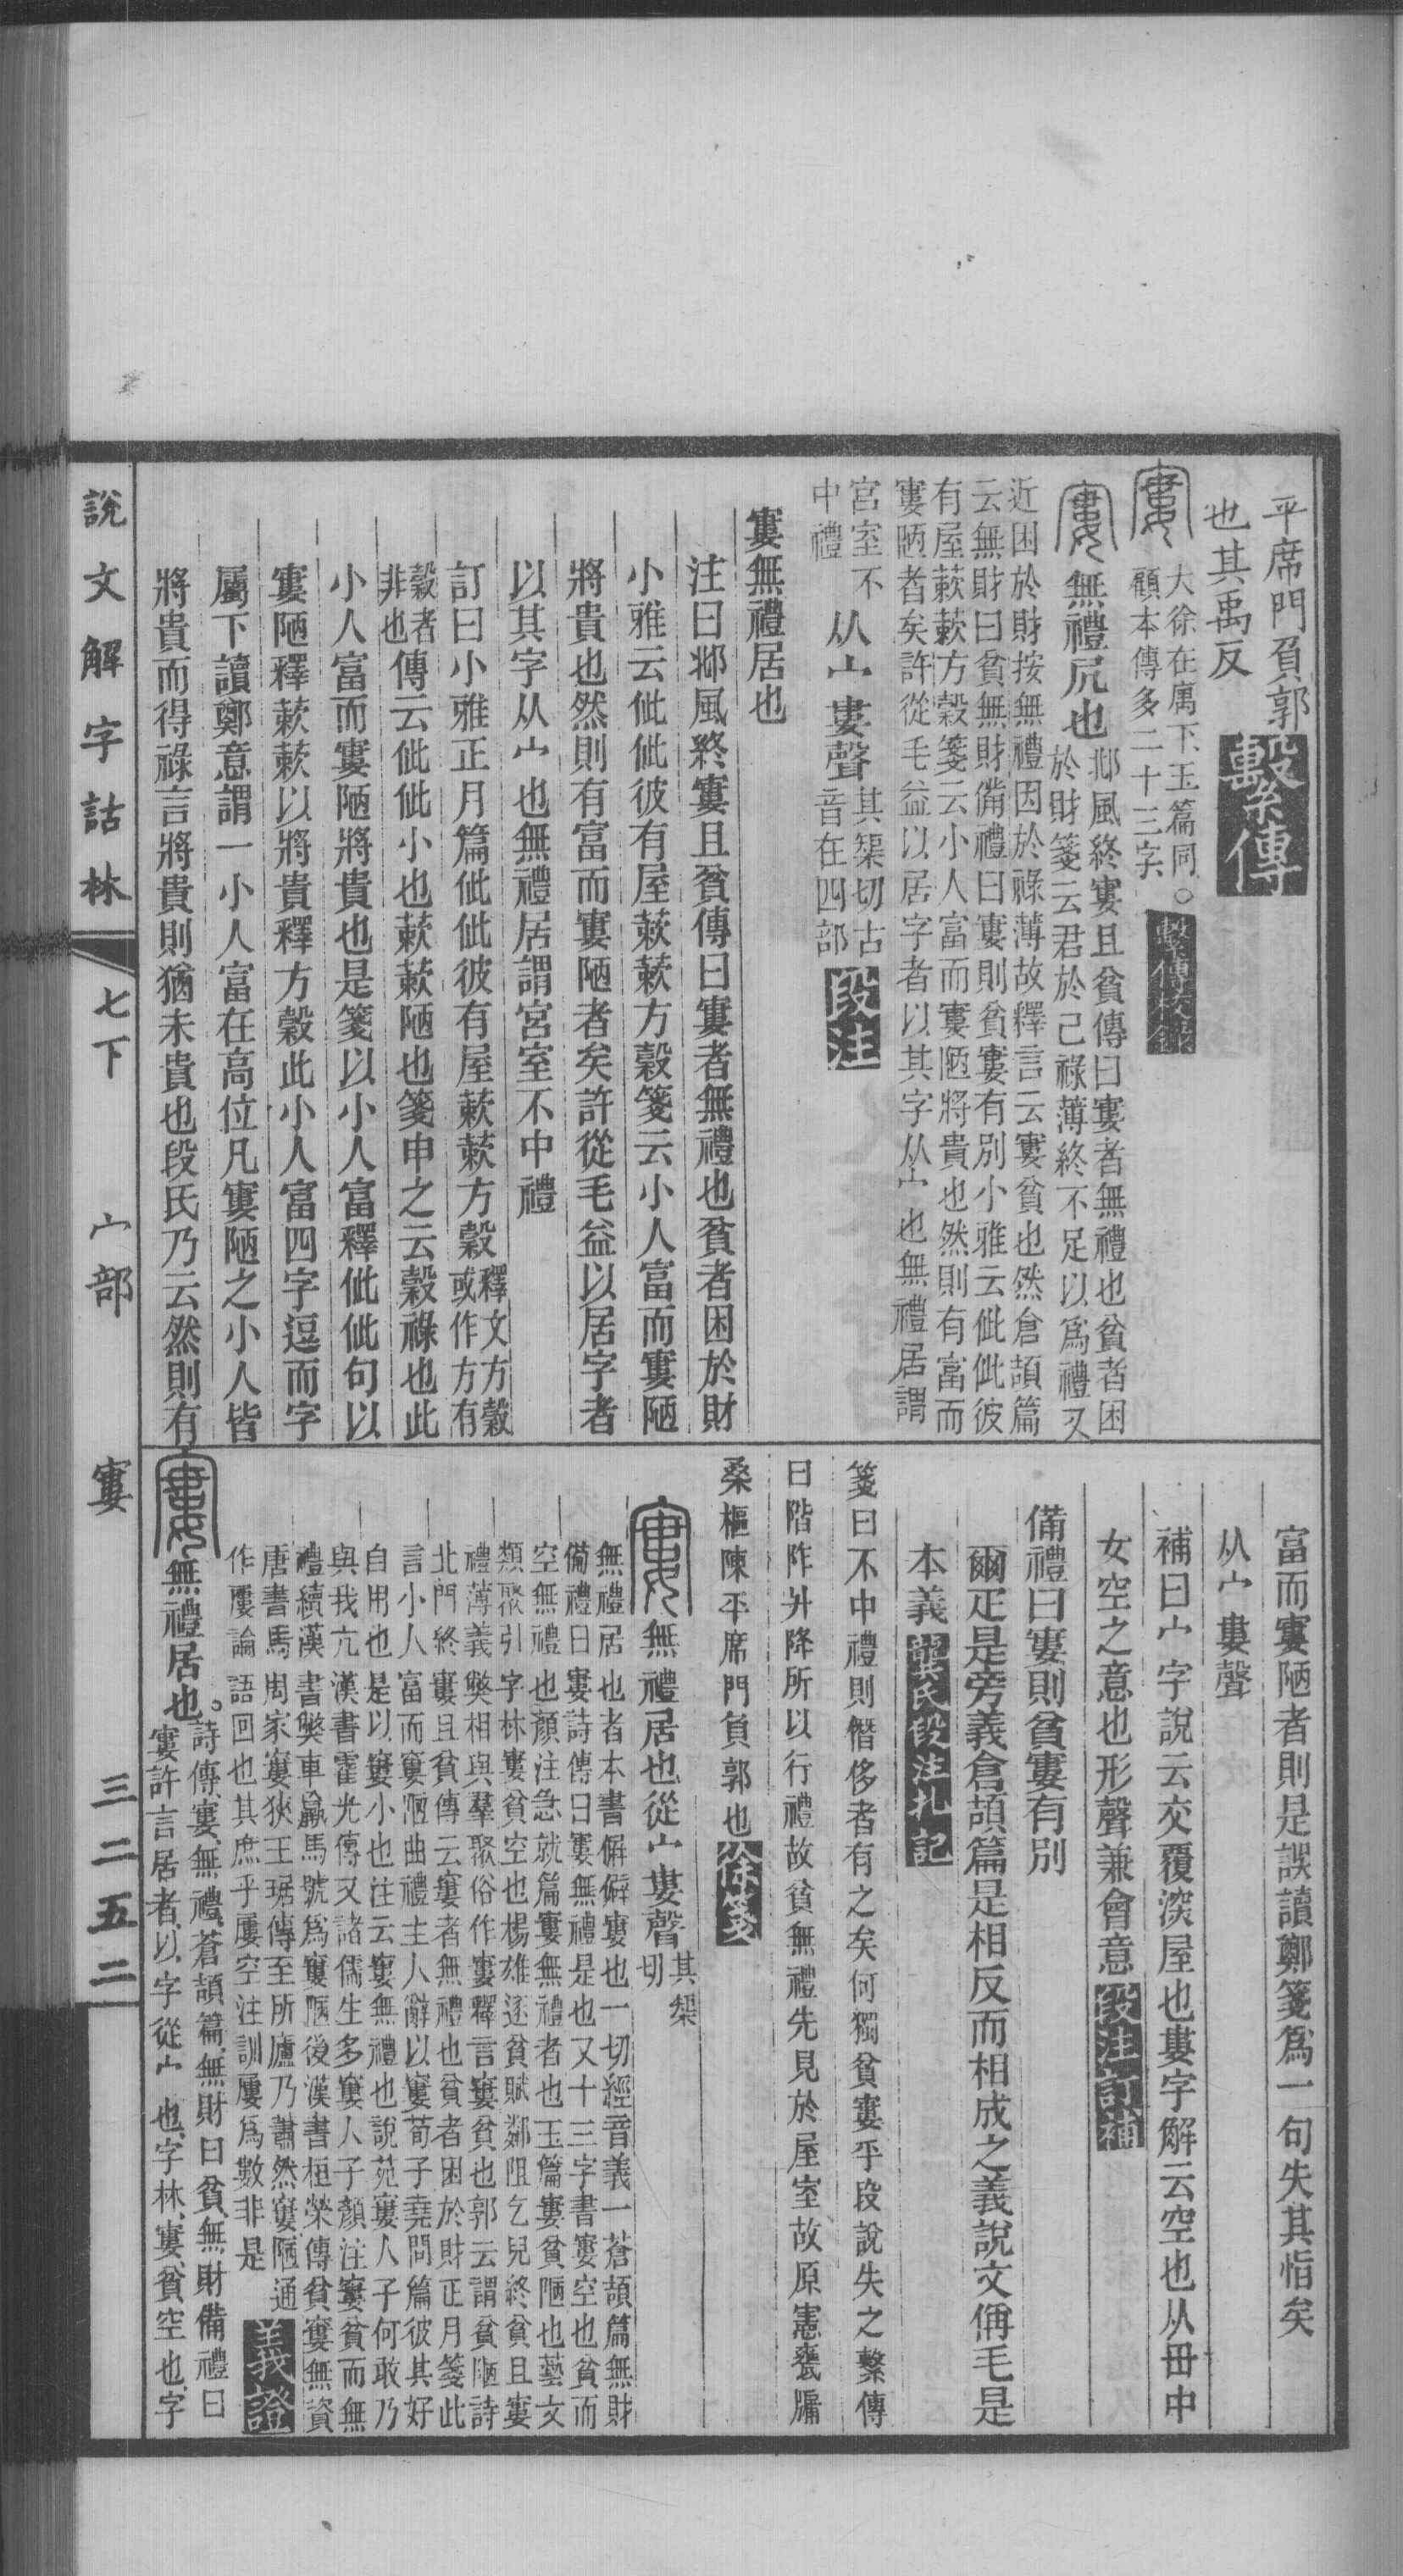 平席門負郭
也其禹反
繫傳
大徐在寓下玉篇同○
顧本傳多二十三字
繫傳校錄
無禮尻也
邶風終寠且貧傳曰寠者無禮也貧者困
於財箋云君於己祿薄終不足以爲禮又
近困於財按無禮因於祿薄故釋言云寠貧也然倉頡篇
云無財曰貧無財備禮曰寠則貧寠有別小雅云佌佌彼
有屋蔌蔌方穀箋云小人富而寠陋將貴也然則有富而
寠陋者矣許從毛益以居字者以其字从宀也無禮居謂
宮室不
中禮
从宀婁聲
其榘切古
音在四部
段注
寠無禮居也
注曰邶風終寠且貧傳曰寠者無禮也貧者困於財
小雅云佌佌彼有屋蔌蔌方穀箋云小人富而寠陋
將貴也然則有富而寠陋者矣許從毛益以居字者
以其字从宀也無禮居謂宮室不中禮
訂曰小雅正月篇佌佌彼有屋蔌蔌方穀
釋文方穀
或作方有
穀者
非也
傳云佌佌小也蔌蔌陋也箋申之云穀祿也此
小人富而寠陋將貴也是箋以小人富釋佌佌句以
寠陋釋蔌蔌以將貴釋方穀此小人富四字逗而字
屬下讀鄭意謂一小人富在高位凡寠陋之小人皆
將貴而得祿言將貴則猶未貴也段氏乃云然則有
富而寠陋者則是誤讀鄭箋爲一句失其恉矣
从宀婁聲
補曰宀字說云交覆深屋也婁字解云空也从毌中
女空之意也形聲兼會意
段注訂補
備禮曰寠則貧寠有別
爾疋是旁義倉頡篇是相反而相成之義說文偁毛是
本義
龔氏段注札記
箋曰不中禮則僭侈者有之矣何獨貧寠乎段說失之繫傳
曰階阼升降所以行禮故貧無禮先見於屋室故原憲甕牖
桑樞陳平席門負郭也
徐箋
無禮居也從宀婁聲
其榘
切
無禮居也者本書僻僻寠也一切經音義一蒼頡篇無財
備禮曰寠詩傳曰寠無禮是也又十三字書寠空也貧而
空無禮也顏注急就篇寠無禮者也玉篇寠貧陋也藝文
類聚引字林寠貧空也楊雄逐貧賦鄰阻乞兒終貧且寠
禮薄義獘相與羣聚俗作寠釋言寠貧也郭云謂貧陋詩
北門終寠且貧傳云寠者無禮也貧者困於財正月箋此
言小人富而寠陋曲禮主人辭以寠荀子堯問篇彼其好
自用也是以寠小也注云寠無禮也說苑寠人子何敢乃
與我亢漢書霍光傳又諸儒生多寠人子顏注寠貧而無
禮續漢書獘車羸馬號爲寠陋後漢書桓榮傳貧寠無資
唐書馬周家寠狹王琚傳至所廬乃蕭然寠陋通
作屢論語回也其庶乎屢空注訓屢爲數非是
義證
無禮居也。
詩傳寠無禮蒼頡篇無財曰貧無財備禮曰
寠許言居者以字從宀也字林寠貧空也字
說文解字詁林
七下
宀部
寠
三二五二